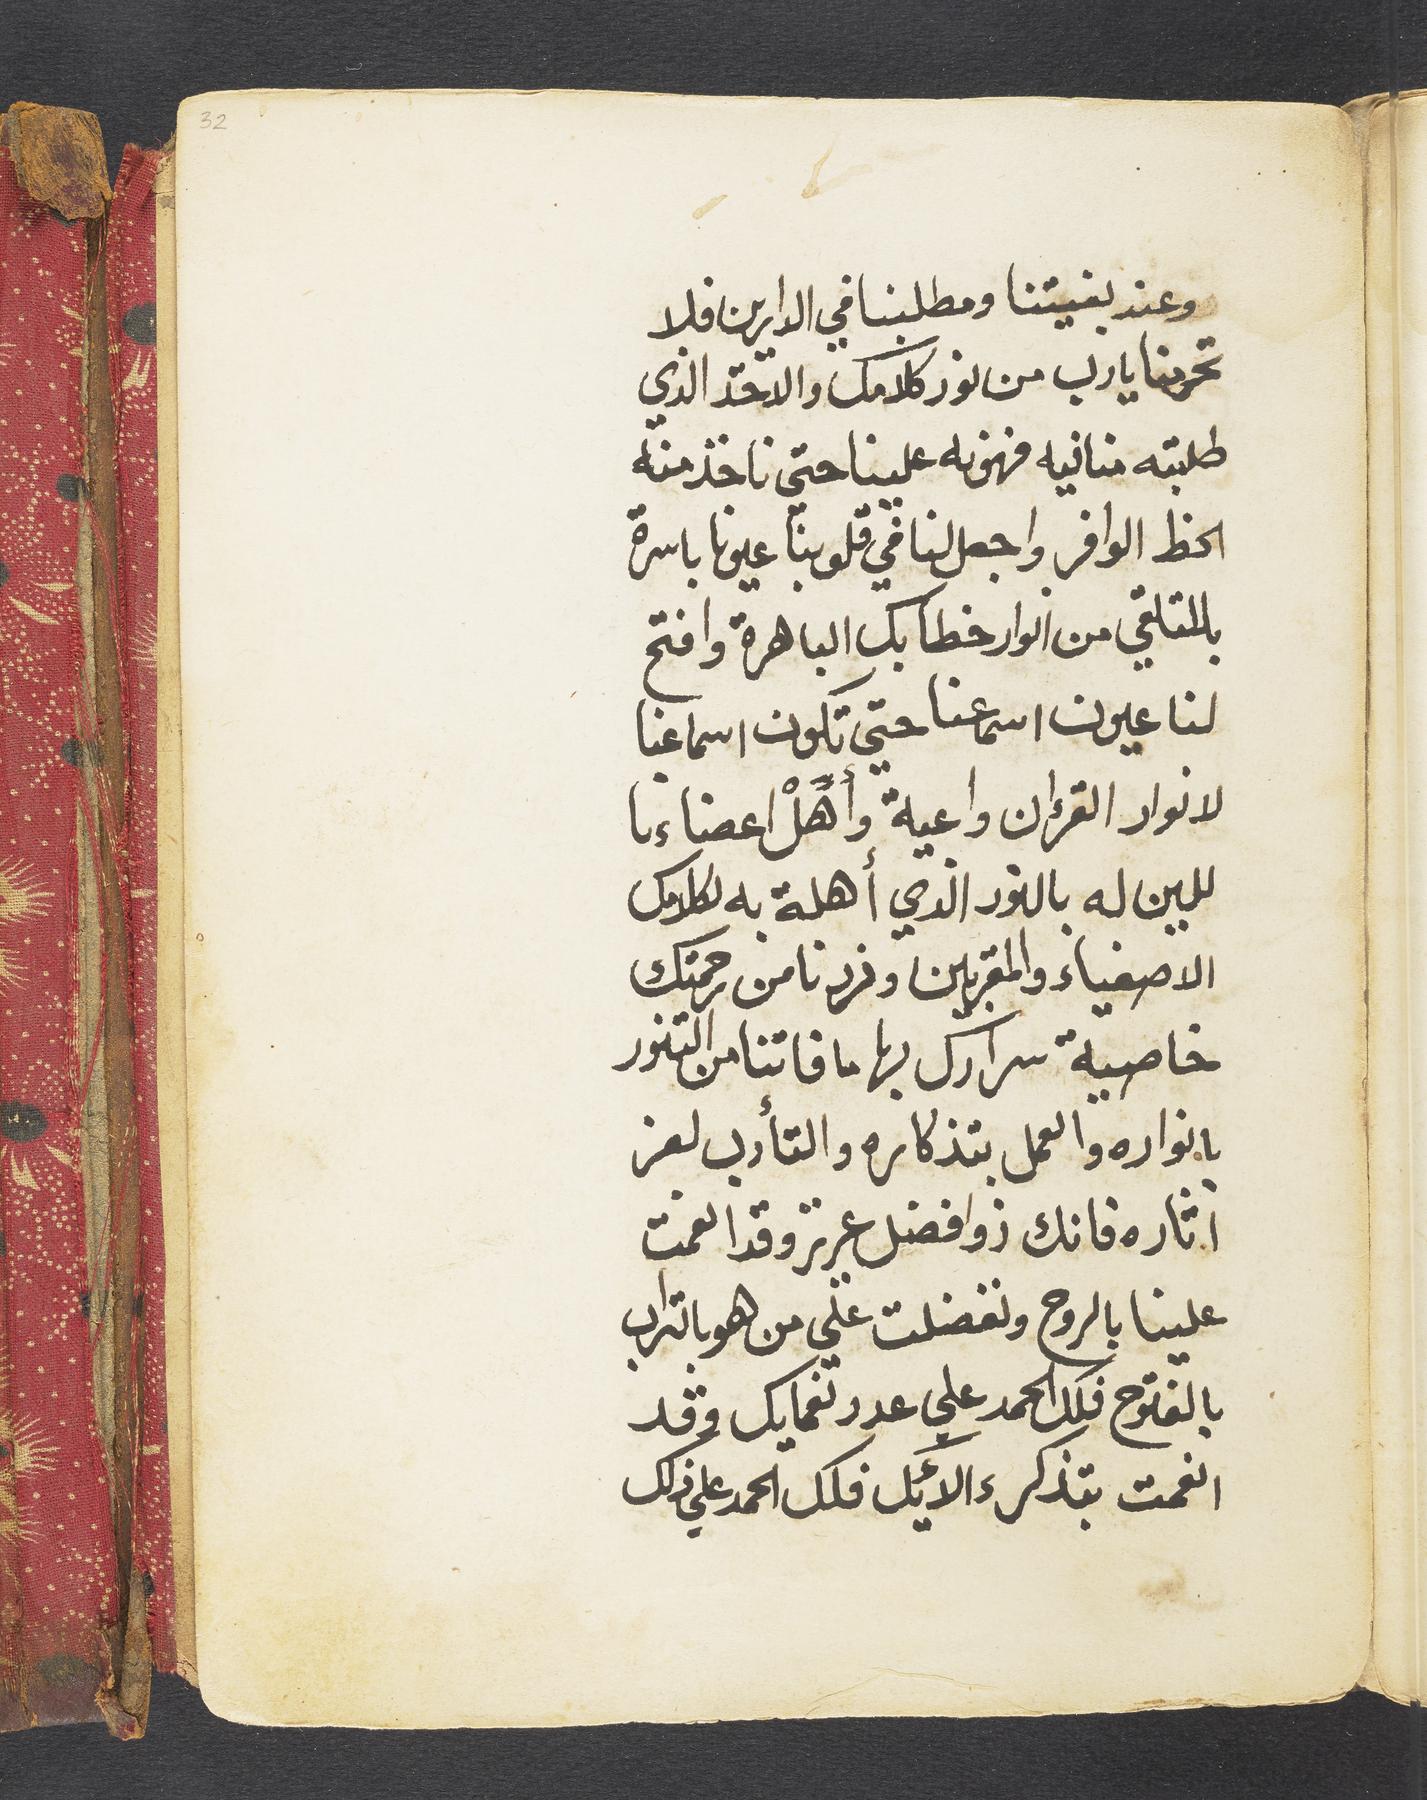 32
وعند بغيتنا ومطلبنا في الدارين فلا
تحرمنا يارب من نور كلامك والاخذ الذي
طلبته منا فيه فهونه علينا حتي ناخذ منه
الحظ الوافر واجعل لنا في قلوبنا عيونا باسرة
بالتلقي من انوار خطابك الباهرة وافتح
لنا عيون اسماعنا حتي تكون اسماعنا
لانوار القرءان واعية وأهِّلْ اعضاءنا
للين له بالنور الذي أهلة به لكلامك
الاصفياء والمقربين وفردنا من رحمتك
خاصية بها ما فاتنا من التنور
بانواره والعمل بتذكاره والتأدب لعز
اثاره فانك ذوا فضل عزيز وقد انعمت
علينا بالروح وتفضلت علي من هو بالتراب
بالفتوح فلك الحمد علي عدد نعمايك وقد
انعمت بتذكرء الائك فلك الحمد علي ذلك